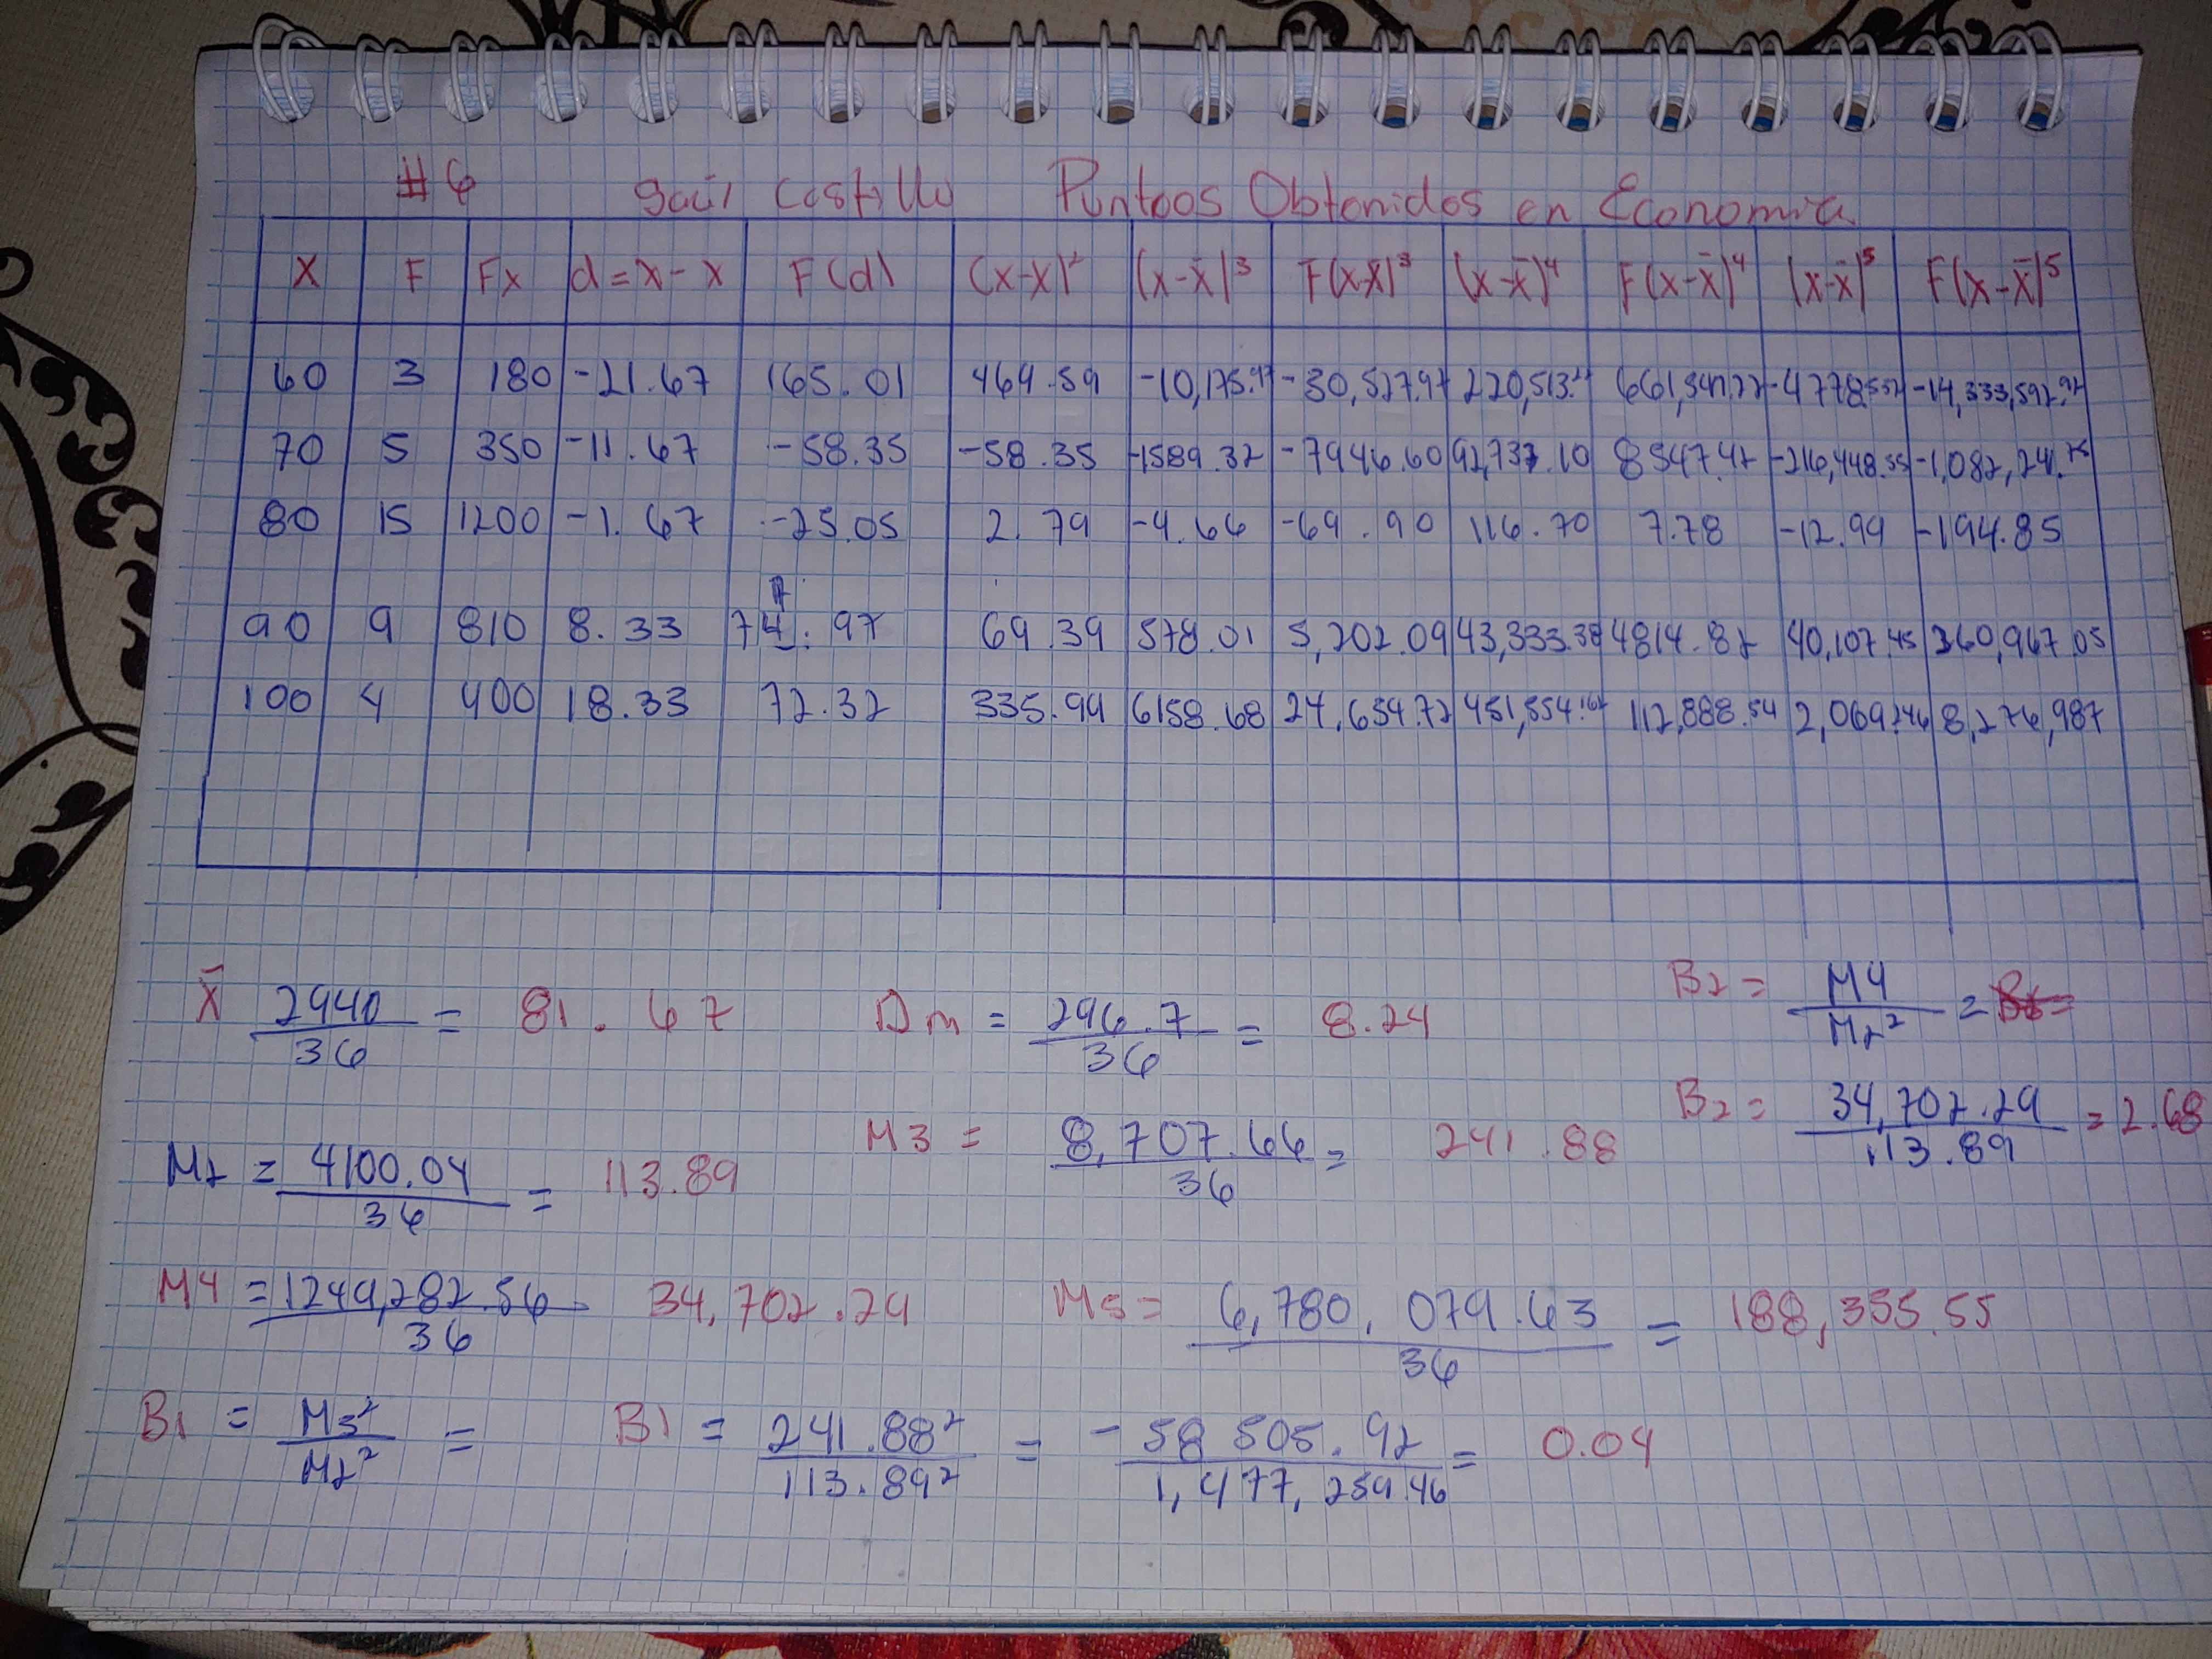 #6 Saúl Castillo Puntoos Obtenidos en Economia
X F Fx d=x-x F(d) (x-x)² (x-x̄)³ F(x-x̄)³ (x-x̄)⁴ F(x-x̄)⁴ (x-x̄)⁵ F(x-x̄)⁵
60 3 180 -21.67 165.01 469.59 -10,175.97 -30,527.97 220,513.21 661,541.22 -14,333,592.92
70 5 350 -11.67 -58.35 -58.35 -1589.32 -7946.60 92,737.10 8547.42 -216,448.55
80 15 1200 -1.67 -25.05 2.79 -4.66 -69.90 116.70 7.78 -12.99 -194.85
90 9 810 8.33 74.97 69.39 578.01 5,202.09 43,333.38 4814.82 40,107.45 360,967.05
100 4 400 18.33 72.32 335.99 6158.68 24,654.72 451,554.162 112,888.54 2,069,246 8,276,987
X̄ 2940/36 = 81.67 Dm = 296.7/36 = 8.24 B2 = M4/M2² =
B2 = 34,702.29/113.89 = 2.68
M2 = 4100.04/36 = 113.89 M3 = 8,707.66/36 = 241.88
M4 = 1249,282.56/36 34,702.29 M5 = 6,780,079.63/36 = 188,335.55
B1 = M3²/M2² = B1 = 241.88²/113.89² = -58 505.92/1,477,259.46 = 0.04